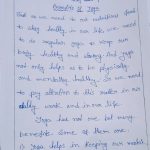 Benefits of Yoga
But as we need to eat nutritious food
to stay healthy in our life, we need to
do regular yoga to keep our
body healthy and strong. And yoga
not only helps us to be physically
and mentally healthy. So we need
to pay attention to this matter in our
daily work and in our life.
Yoga has not one but many
benefits. Some of them are:
① Yoga helps in keeping our mental